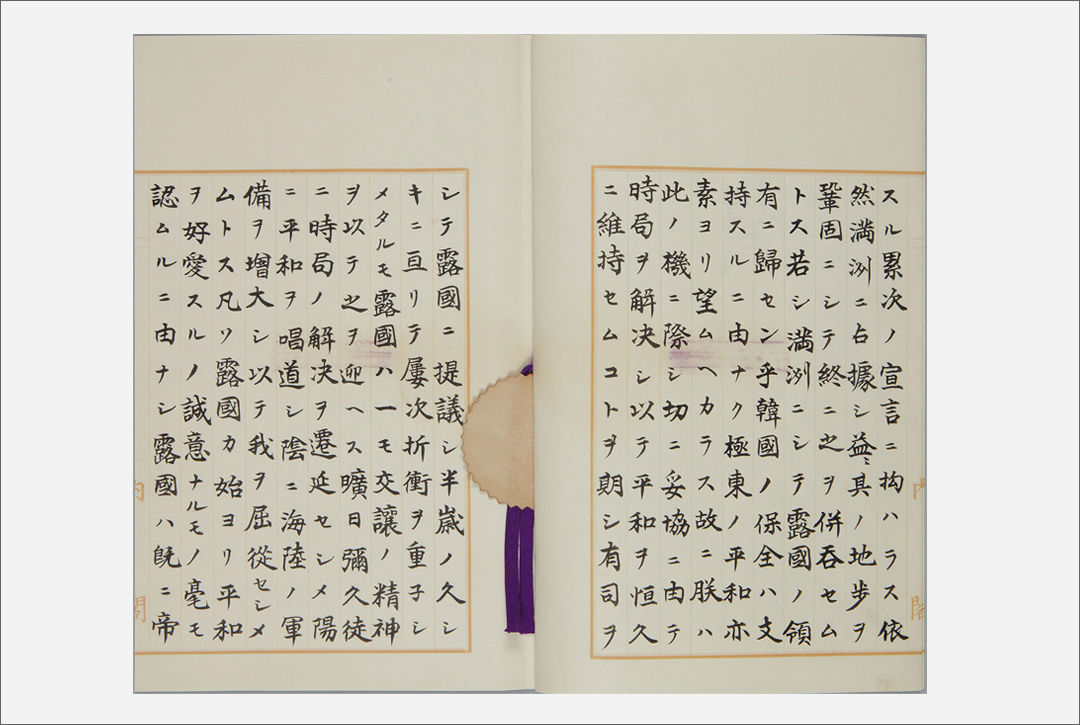 スル累次ノ宣言ニ拘ハラス依
然満洲ニ占據シ益〻其ノ地歩ヲ
鞏固ニシテ終ニ之ヲ併呑セム
トス若シ満洲ニシテ露國ノ領
有ニ歸セン乎韓國ノ保全ハ支
持スルニ由ナク極東ノ平和亦
素ヨリ望ムヘカラス故ニ朕ハ
此ノ機ニ際シ切ニ妥協ニ由テ
時局ヲ解决シ以テ平和ヲ恒久
ニ維持セムコトヲ期シ有司ヲ
シテ露國ニ提議シ半歳ノ久シ
キニ亘リテ屢次折衝ヲ重子シ
メタルモ露國ハ一モ交讓ノ精神
ヲ以テ之ヲ迎ヘス曠日彌久徒
ニ時局ノ解决ヲ遷延セシメ陽
ニ平和ヲ唱道シ陰ニ海陸ノ軍
備ヲ增大シ以テ我ヲ屈從セシメ
ムトス凡ソ露國カ始ヨリ平和
ヲ好愛スルノ誠意ナルモノ毫モ
認ムルニ由ナシ露國ハ既ニ帝
内閣
内閣